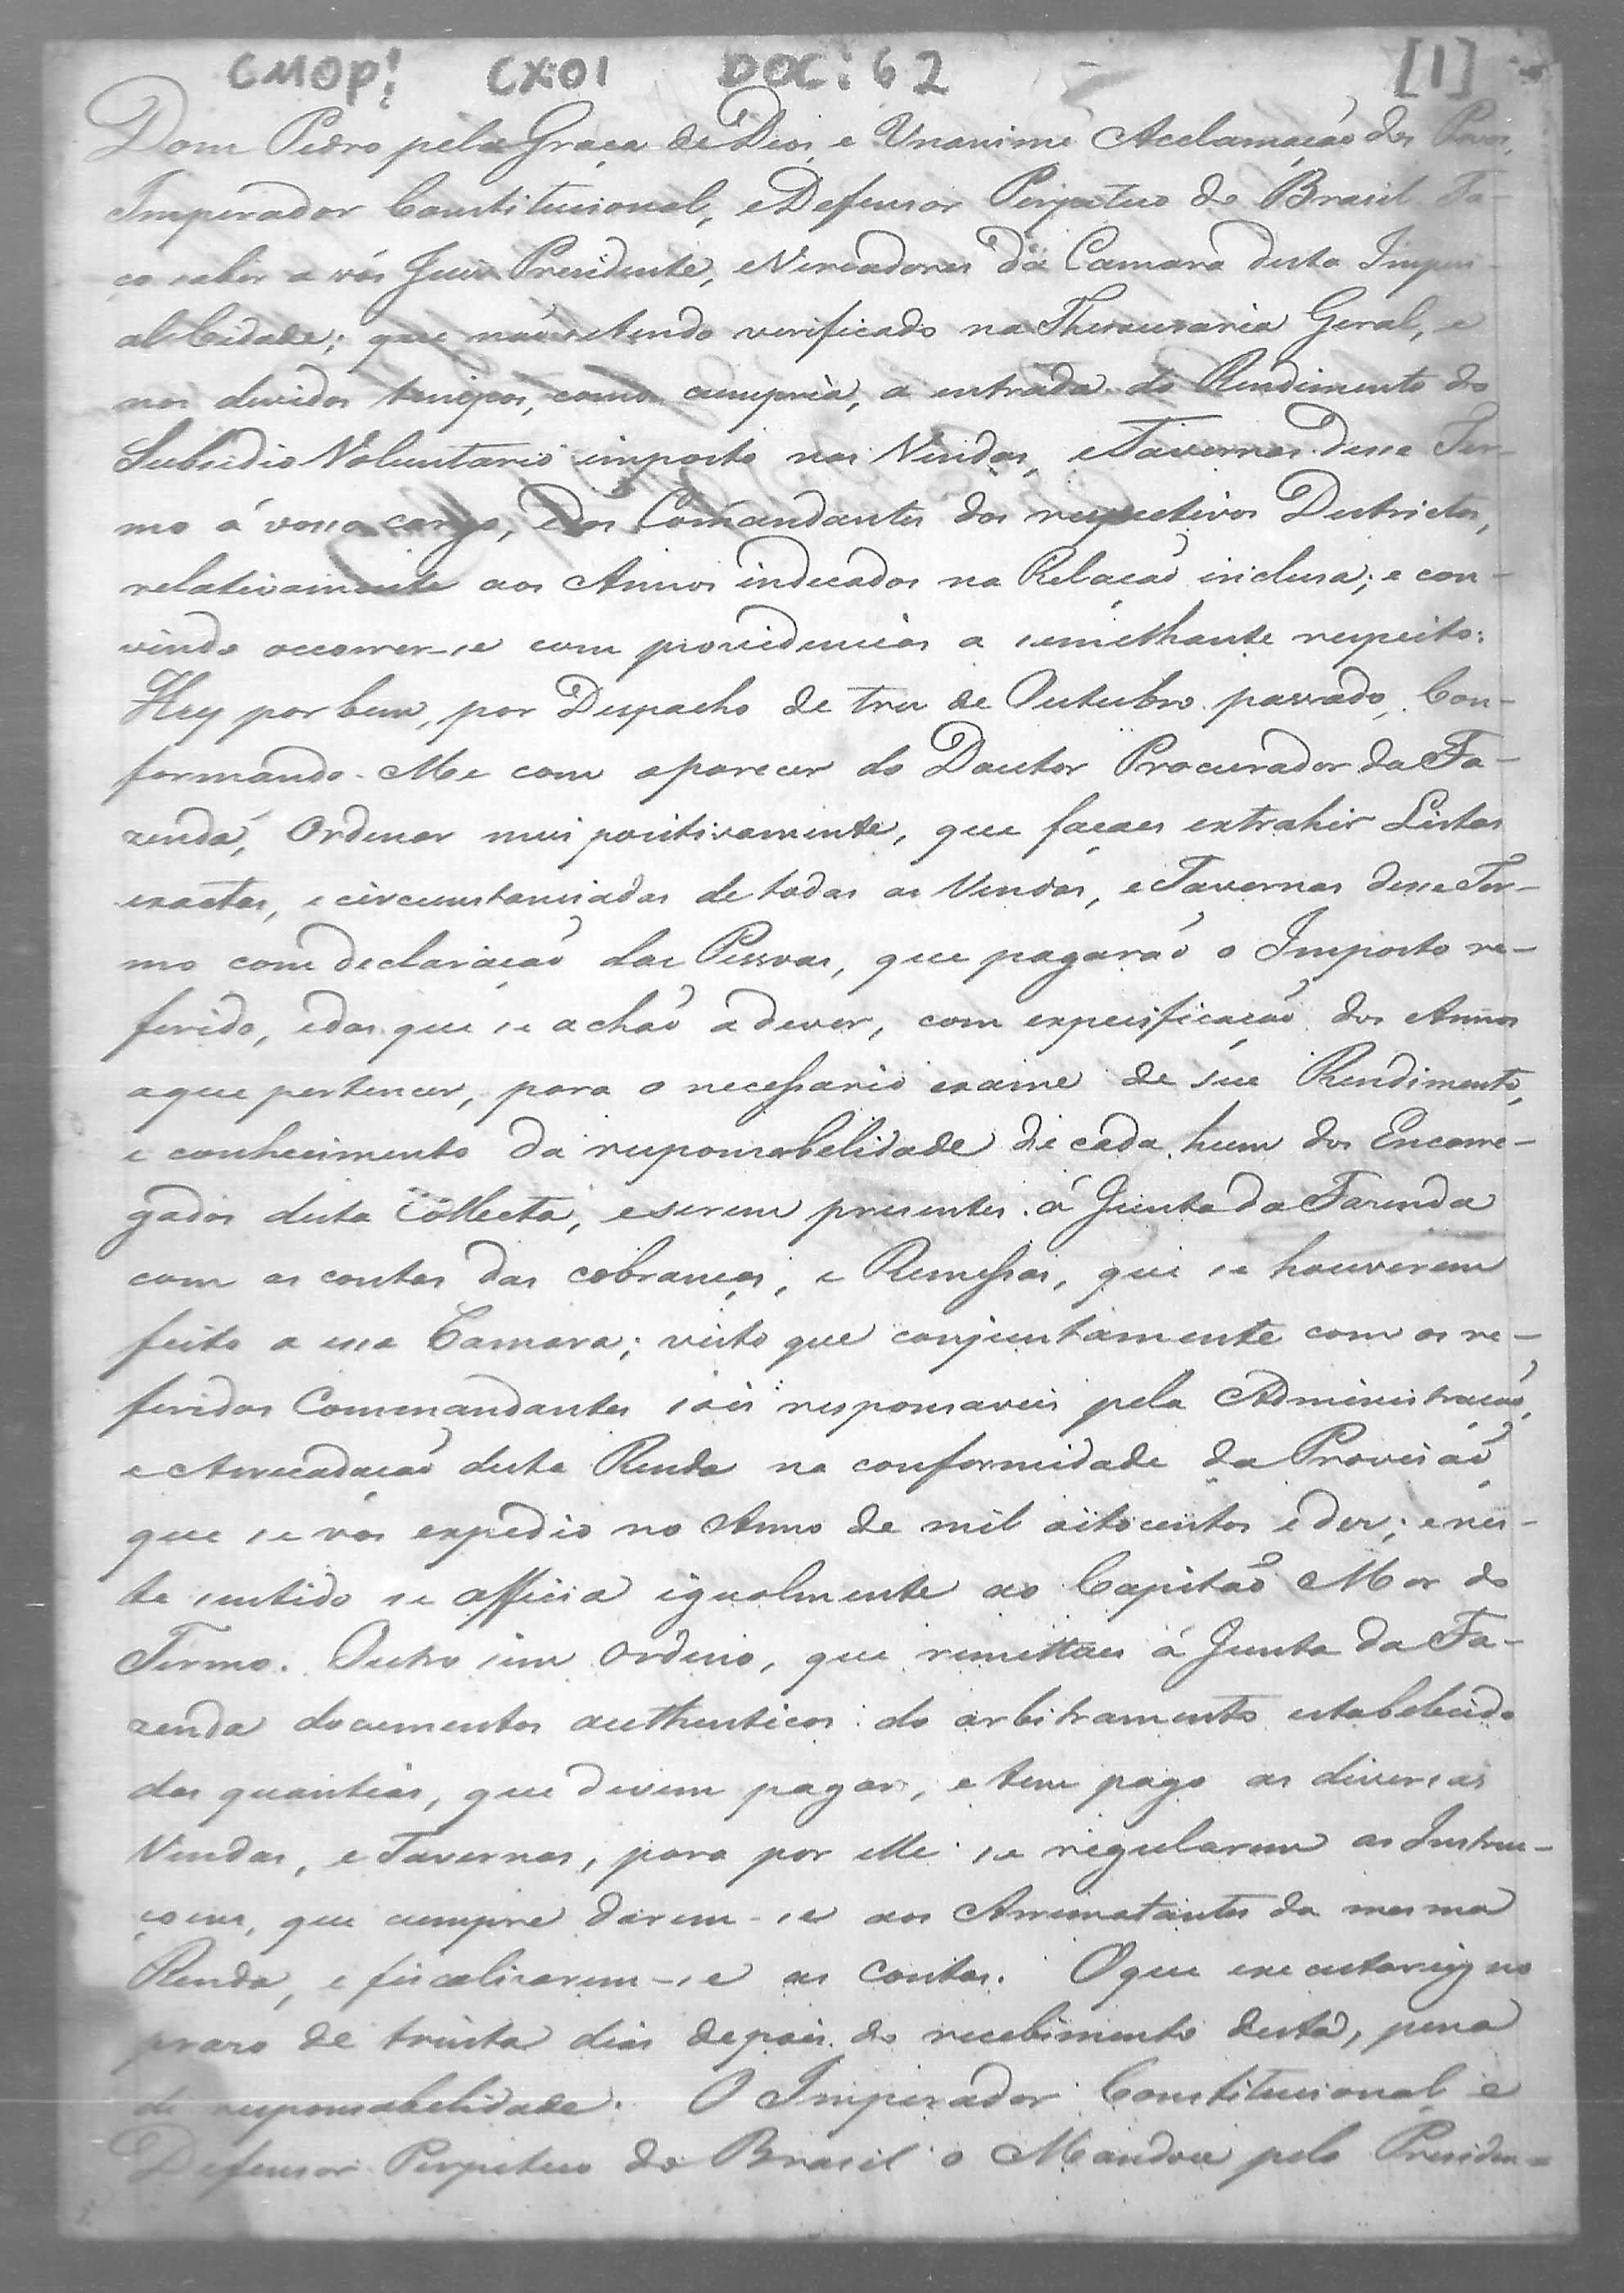 CMOP! CX:01 DOC: 62 [1]
Dom Pedro pela Graça de Deos, e Unanime Acclamação dos Povos,
Imperador Constitucional, e Defensor Perpetuo do Brasil Fa-
ço saber a vós Juiz Presidente, e Vereadores da Camara desta Imperi-
al Cidade; que não se tendo verificado na Thesouraria Geral, e
nos devidos tempos, como cumpria, a entrada do Rendimento do
Subsidio Voluntario imposto nas Vendas, e Tavernas desse Ter-
mo á vosso cargo, e dos Comandantes dos respectivos Destrictos,
relativamente aos Annos indicados na Relação inclusa; e con-
vindo occorrer-se com providencias a semelhante respeito:
Hey por bem, por Despacho de tres de Outubro passado, Con-
formando-Me com o parecer do Doutor Procurador da Fa-
zenda, Ordenar mui positivamente, que façaes extrahir Listas
exactas, e circumstanciadas de todas as Vendas, e Tavernas desse Ter-
mo com declaração das Pessoas, que pagarão o Imposto re-
ferido, e das que se achão a dever, com especificação dos Annos
a que pertencer, para o necessario exame de seu Rendimento,
e conhecimento da responsabelidade de cada hum dos Encarre-
gados desta Collecta, e serem presentes á Junta da Fazenda
com as contas das cobranças, e Remessas, que se houverem
feito a essa Camara; visto que conjuntamente com os re-
feridos Commandantes sois responsaveis pela Administração,
e Arrecadação desta Renda na conformidade da Provisão
que se vos expedio no Anno de mil oitocentos e dez; e nes-
te sentido se officia igualmente ao Capitão Mor do
Termo. Outro sim Ordeno, que remettaes á Junta da Fa-
zenda documentos authenticos do arbitramento estabelecido
das quantias, que devem pagar, e tem pago as diversas
Vendas, e Tavernas, para por elle se regularem as Instruc-
çoens, que cumpre darem-se aos Arrematantes da mesma
Renda, e fiscalisarem-se as contas. O que executareis no
prazo de trinta dias depois do recebimento desta, pena
de responsabelidade. O Imperador Constitucional e
Defensor Perpetuo do Brasil o Mandou pelo Presiden-